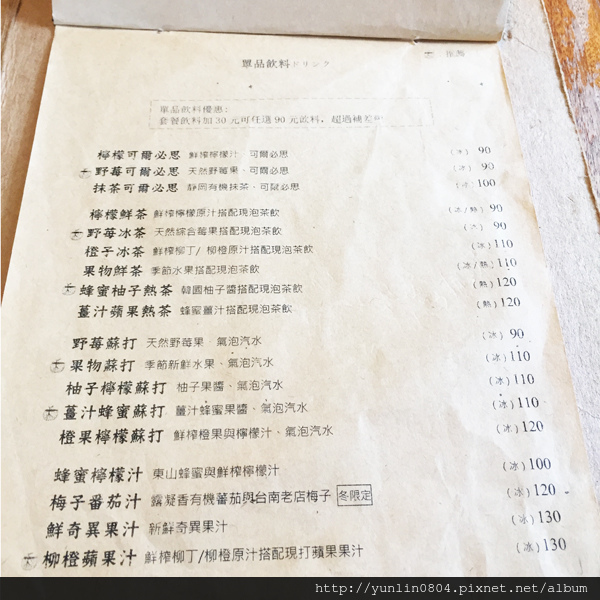 推薦
單品飲料ドリンク
單品飲料優惠:
套餐飲料加30元可任選90元飲料，超過補差額
檸檬可爾必思 鮮榨檸檬汁、可爾必思 (冰) 90
野莓可爾必思 天然野莓果、可爾必思 (冰) 90
抹茶可爾必思 靜岡有機抹茶、可爾必思 (冰) 100
檸檬鮮茶 鮮榨檸檬原汁搭配現泡茶飲 (冰/熱) 90
野莓冰茶 天然綜合莓果搭配現泡茶飲 (冰) 90
橙子冰茶 鮮榨柳丁/ 柳橙原汁搭配現泡茶飲 (冰) 110
果物鮮茶 季節水果搭配現泡茶飲 (冰/熱) 110
蜂蜜柚子熱茶 韓國柚子醬搭配現泡茶飲 (熱) 120
薑汁蘋果熱茶 蜂蜜薑汁搭配現泡茶飲 (熱) 120
野莓蘇打 天然野莓果、氣泡汽水 (冰) 90
果物蘇打 季節新鮮水果、氣泡汽水 (冰) 110
柚子檸檬蘇打 柚子果醬、氣泡汽水 (冰) 110
薑汁蜂蜜蘇打 薑汁蜂蜜果醬、氣泡汽水 (冰) 110
橙果檸檬蘇打 鮮榨橙果與檸檬汁、氣泡汽水 (冰) 120
蜂蜜檸檬汁 東山蜂蜜與鮮榨檸檬汁 (冰) 100
梅子番茄汁 露凝香有機蕃茄與台南老店梅子 冬限定 (冰) 120
鮮奇異果汁 新鮮奇異果汁 (冰) 130
柳橙蘋果汁 鮮榨柳丁/柳橙原汁搭配現打蘋果果汁 (冰) 130
http://yunlin0804.pixnet.net/album